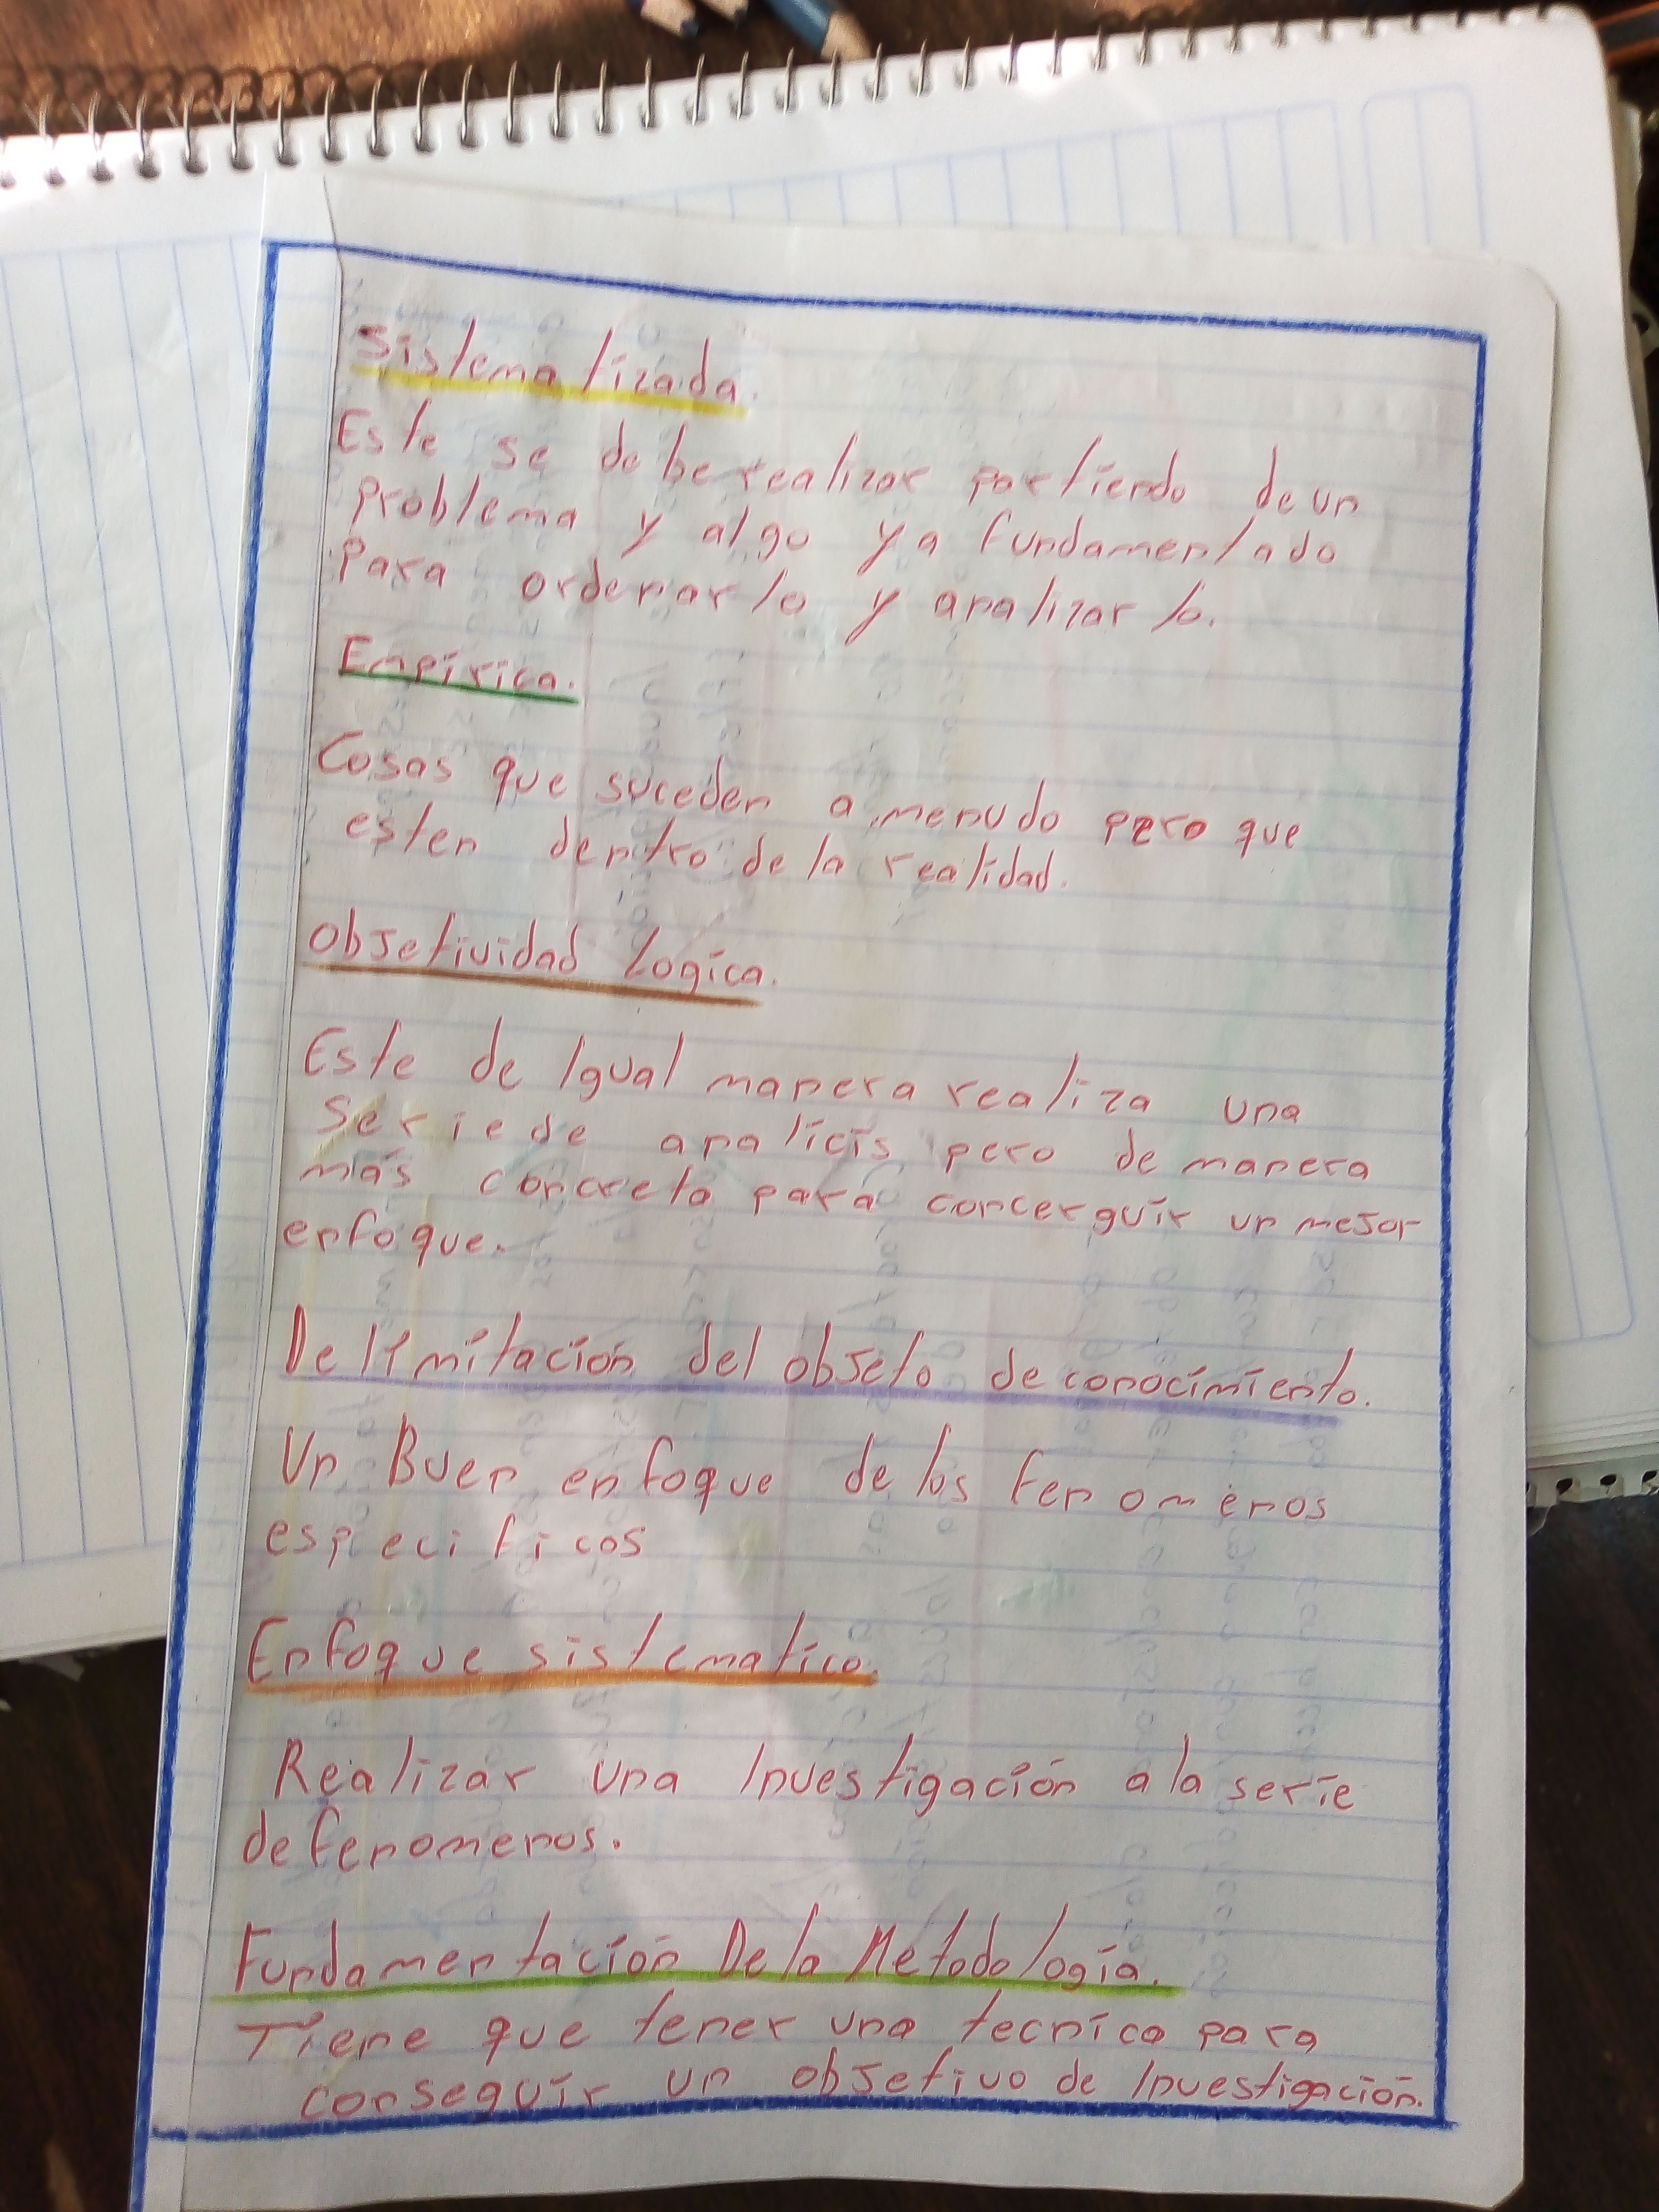 Sistematizada.
Este se debe realizar partiendo de un
problema y algo ya fundamentado
Para ordenarlo y analizarlo.
Empírica.
Cosas que suceden a menudo pero que
esten dentro de la realidad.
Objetividad Logica.
Este de Igual manera realiza una
serie de analicis pero de manera
más concreta para concerguir un mejor
enfoque.
Delimitación del objeto de conocimiento.
Un Buen enfoque de los fenomenos
especificos
Enfoque sistematico.
Realizar una Investigación a la serie
de fenomenos.
Fundamentación De la Metodología.
Tiene que tener una tecnica para
conseguir un objetivo de Investigación.